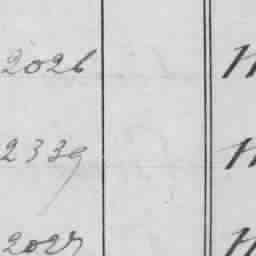 2026
2339
2027